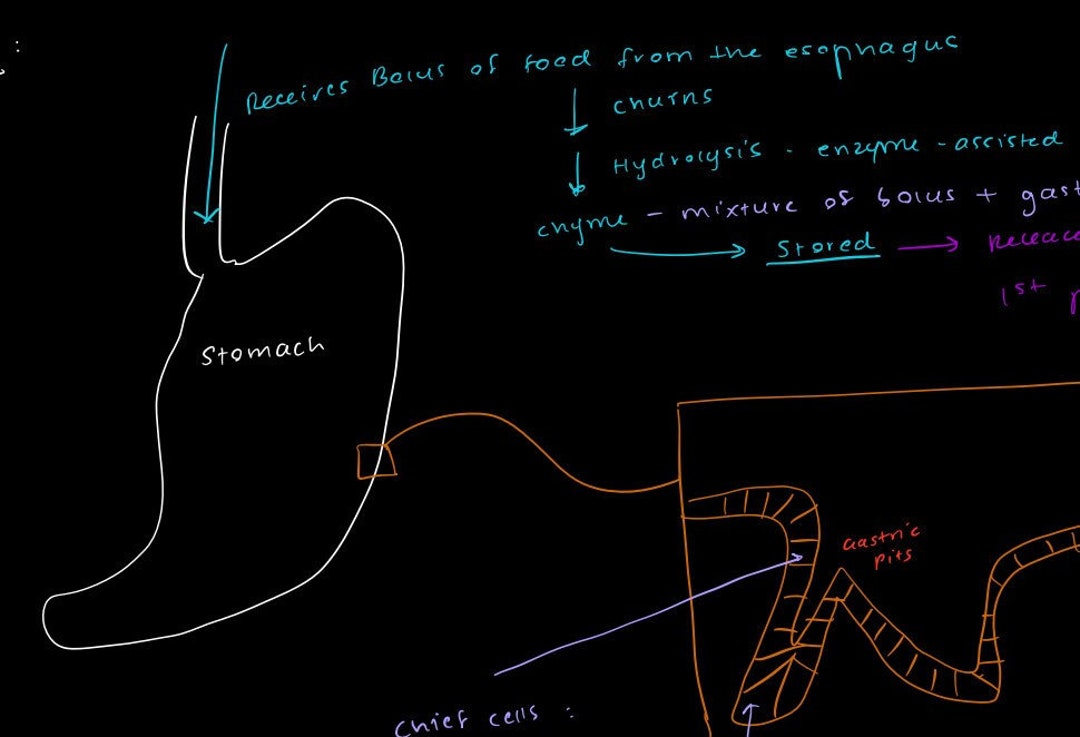 :
Receives Bolus of food from the esophagus
churns
Hydrolysis - enzyme - assisted
chyme - mixture of bolus + gast
Stored
Release
1st p
Stomach
Gastric
pits
Chief cells :